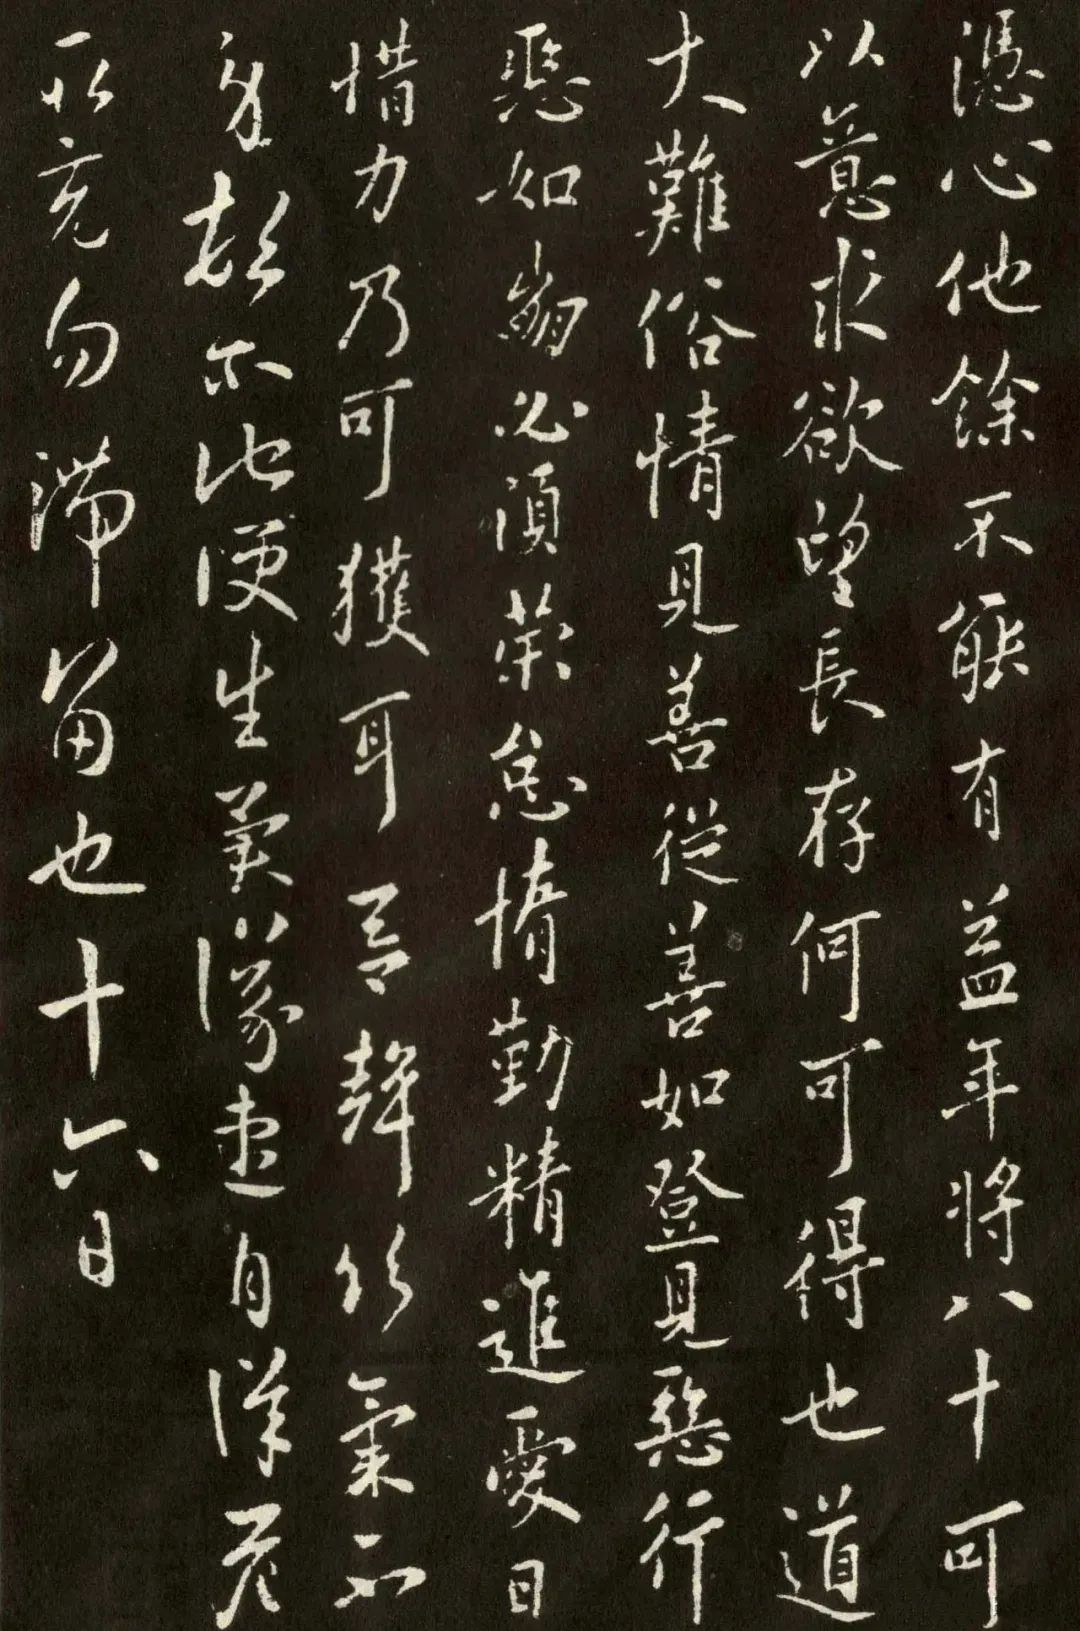 憑心他餘不能有益年將八十可
以意求欲望長存何可得也道
大難俗情見善從善如登見惡行
惡如崩必須榮怠惰勤精進愛日
惜力乃可獲耳吾聲行氣不
多 亦此便生美 遂速自深
所充勿滯留也十六日